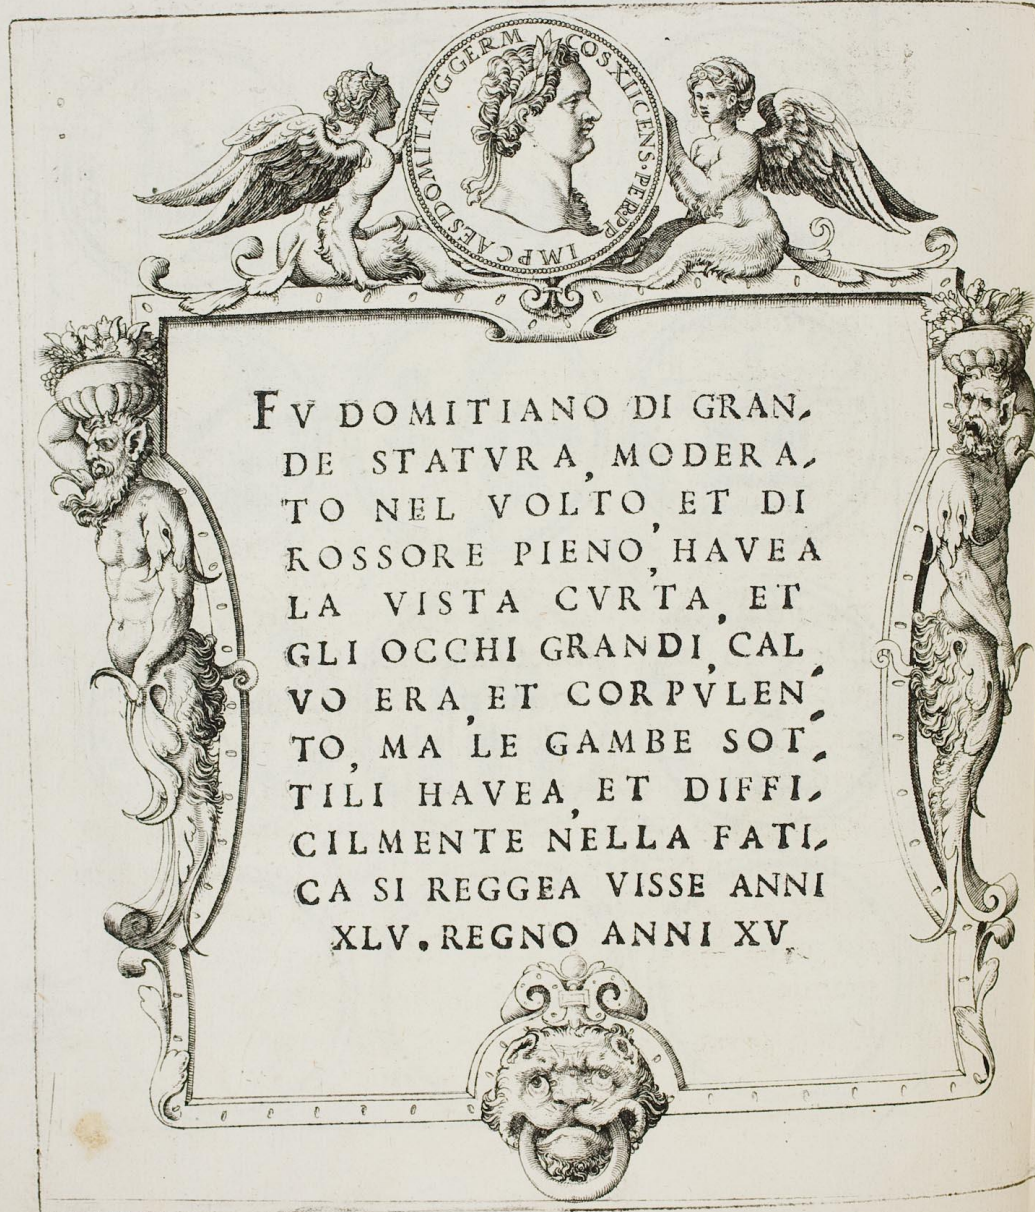 IMP CAES DOMIT AVG GERM COS XII CENS·PER·PP
FV DOMITIANO DI GRAN-
DE STATVRA, MODERA-
TO NEL VOLTO, ET DI
ROSSORE PIENO, HAVEA
LA VISTA CVRTA, ET
GLI OCCHI GRANDI, CAL-
VO ERA, ET CORPVLEN-
TO, MA LE GAMBE SOT-
TILI HAVEA, ET DIFFI-
CILMENTE NELLA FATI-
CA SI REGGEA VISSE ANNI
XLV. REGNO ANNI XV